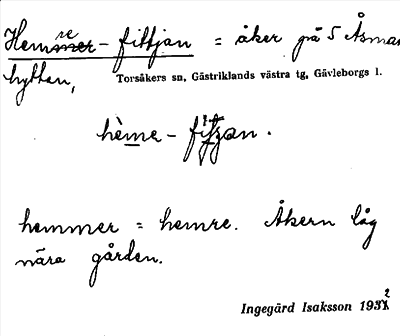 Hemre-fittjan = åker på S Åsmun
hyttan,
Torsåkers sn, Gästriklands västra tg, Gävleborgs l.
hème-fittjan.
hemmer = hemre. Åkern låg
nära gården.
Ingegärd Isaksson 1932